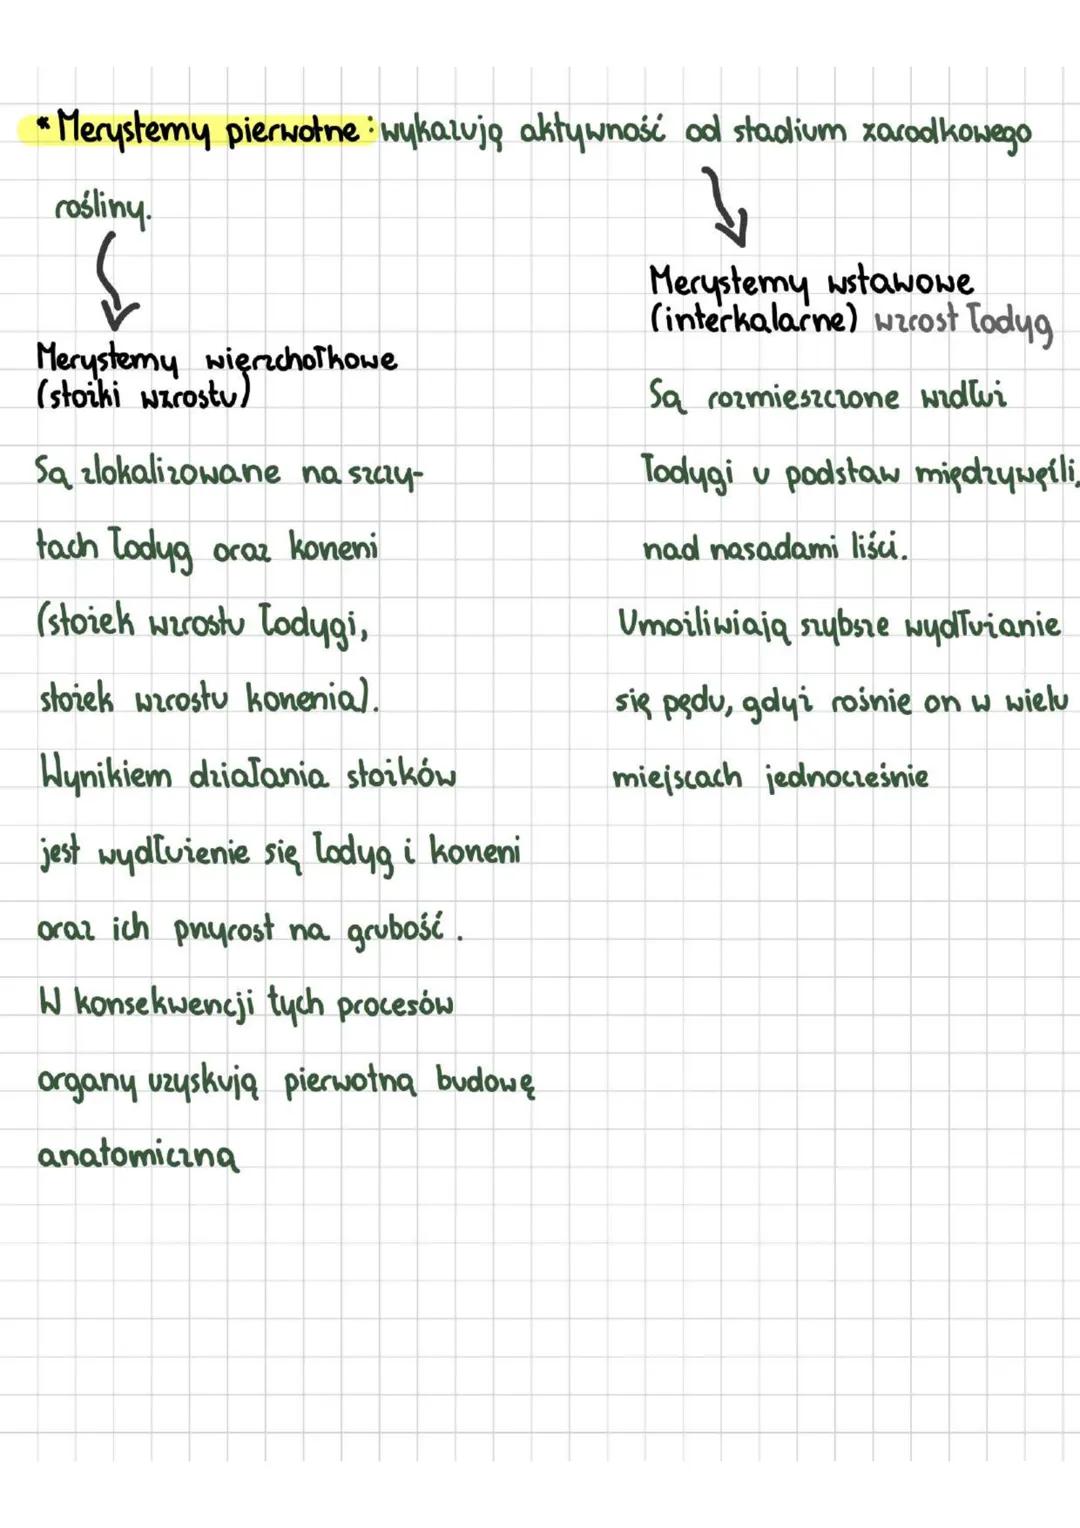 * Merystemy pierwotne: wykazują aktywność od stadium zarodkowego
rośliny.
Merystemy wierzchołkowe
(stożki wzrostu)
Są zlokalizowane na szczy-
tach łodyg oraz korzeni
(stożek wzrostu łodygi,
stożek wzrostu korzenia).
Wynikiem działania stożków
jest wydłużenie się łodyg i korzeni
oraz ich przyrost na grubość.
W konsekwencji tych procesów
organy uzyskują pierwotną budowę
anatomiczną
Merystemy wstawowe
(interkalarne) wzrost łodyg
Są rozmieszczone wzdłuż
łodygi u podstaw międzywęźli,
nad nasadami liści.
Umożliwiają szybsze wydłużanie
się pędu, gdyż rośnie on w wielu
miejscach jednocześnie